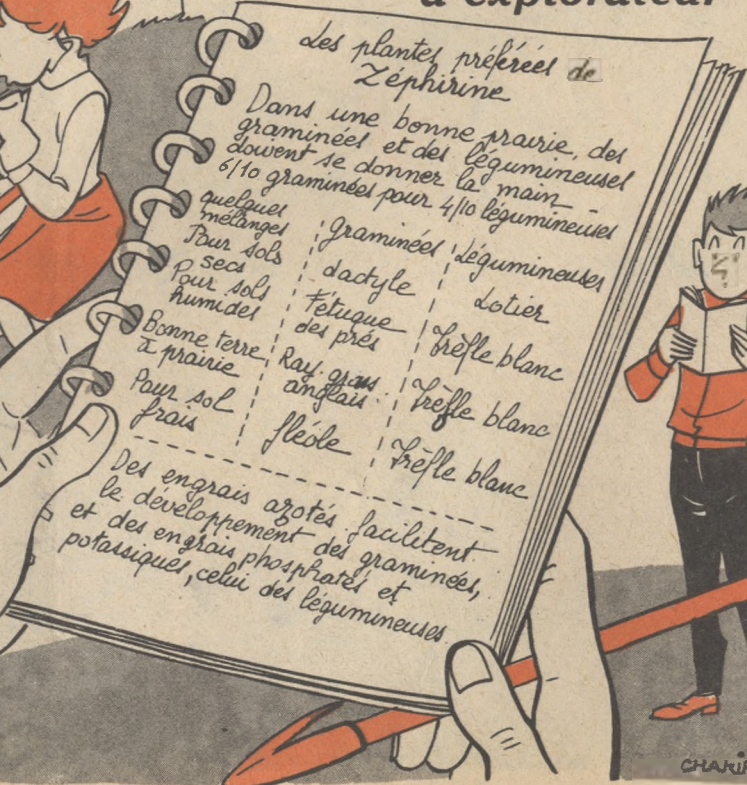 d'explorateur
Les plantes préférées de
Zéphirine
Dans une bonne prairie, des
graminées et des légumineuses
doivent se donner la main -
6/10 graminées pour 4/10 légumineuses
quelques
mélanges
graminées
Légumineuses
Pour sols
secs
dactyle
Lotier
Pour sols
humides
Fétuque
des prés
Trèfle blanc
Bonne terre
à prairie
Ray-grass
anglais
Trèfle blanc
Pour sol
frais
fléole
Trèfle blanc
Des engrais azotés facilitent
le développement des graminées,
et des engrais phosphatés et
potassiques, celui des légumineuses.